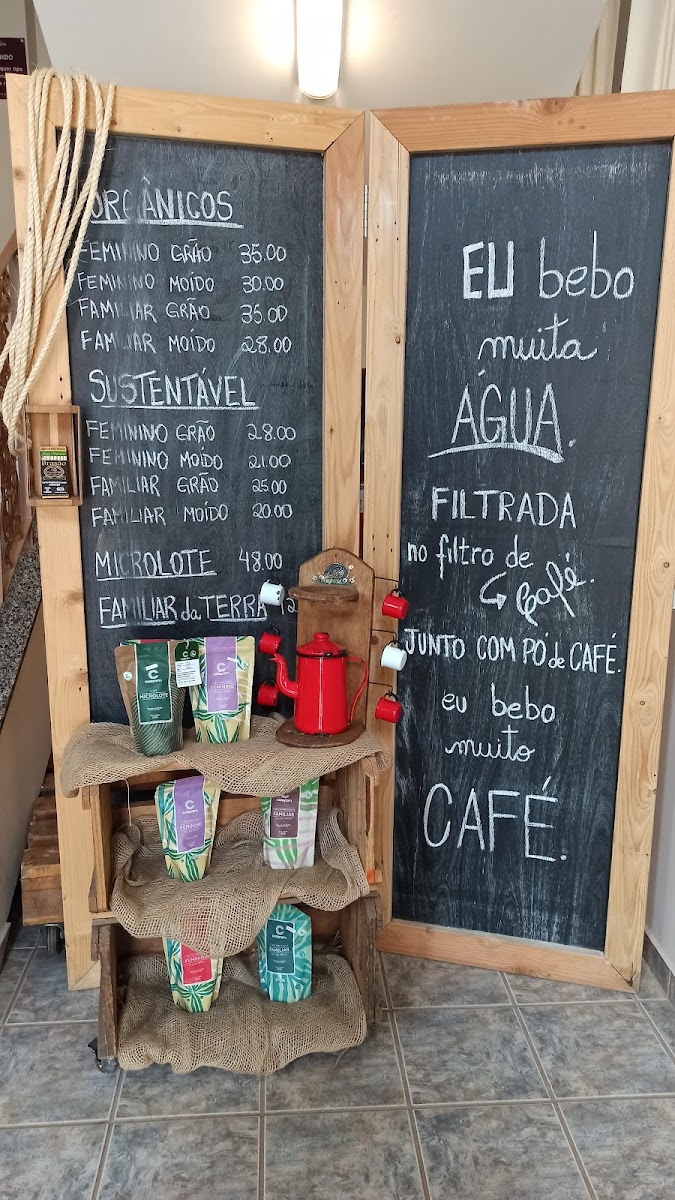 ORGÂNICOS
FEMININO GRÃO 35.00
FEMININO MOÍDO 30.00
FAMILIAR GRÃO 35.00
FAMILIAR MOÍDO 28.00
SUSTENTÁVEL
FEMININO GRÃO 28.00
FEMININO MOÍDO 21.00
FAMILIAR GRÃO 25.00
FAMILIAR MOÍDO 20.00
MICROLOTE 48.00
FAMILIAR da TERRA
EU bebo
muita
ÁGUA.
FILTRADA
no filtro de
café.
JUNTO COM PÓ de CAFÉ.
eu bebo
muito
CAFÉ.
MICROLOTE
FEMININO
FEMININO
FAMILIAR
FEMININO
FAMILIAR